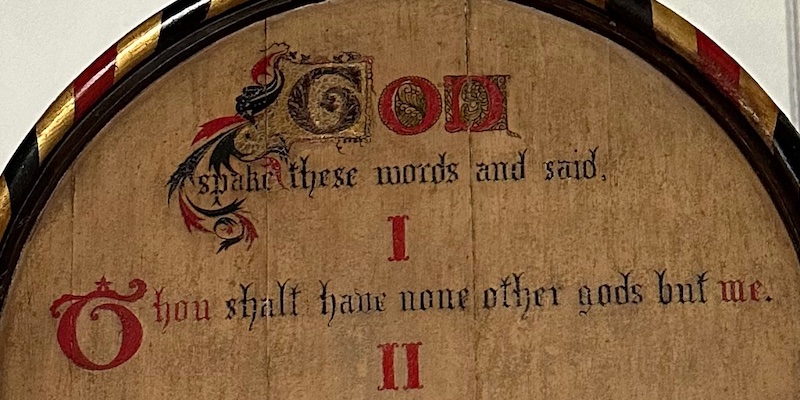 GOD
spake these words and said,
I
Thou shalt have none other gods but me.
II